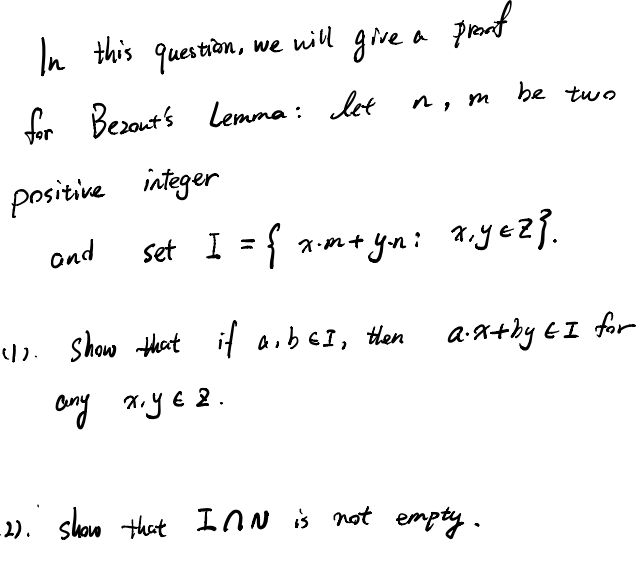 In this question, we will give a proof
for Bezout's Lemma: let n, m be two
positive integer
and set I = { x·m + y·n : x, y ∈ Z }.
(1). Show that if a, b ∈ I, then a·x + by ∈ I for
any x, y ∈ Z.
2). show that I ∩ N is not empty.